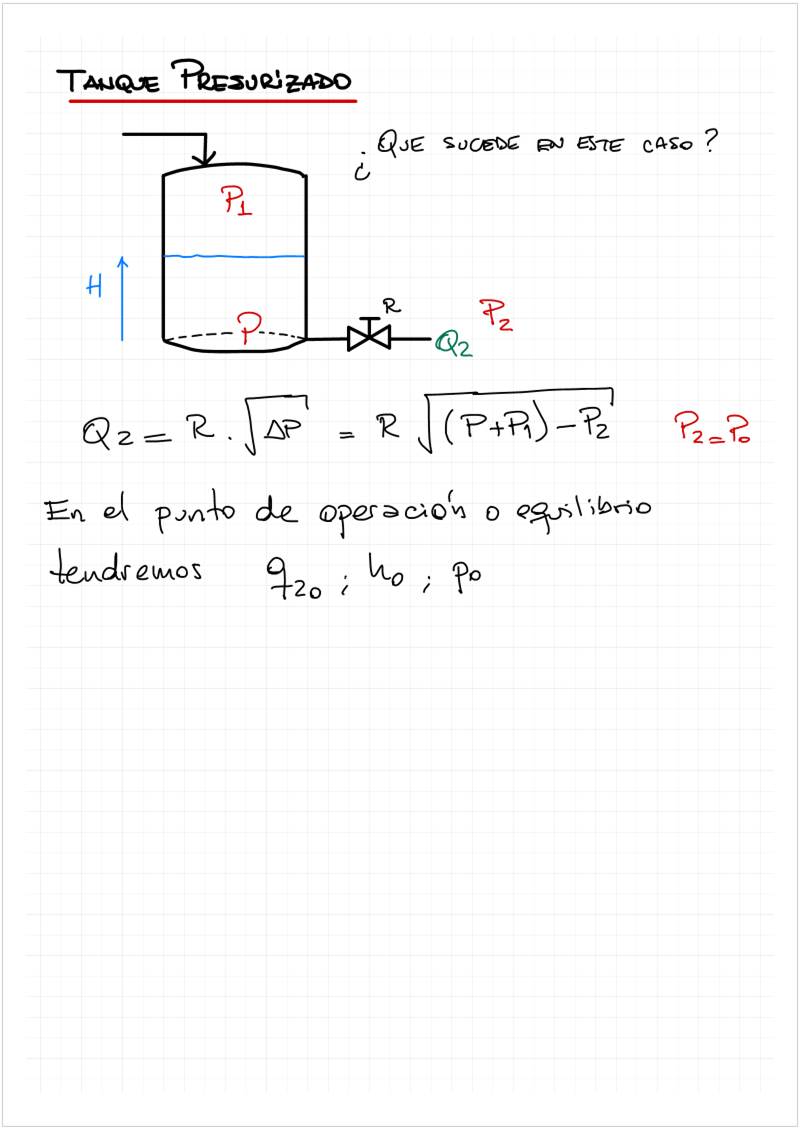 TANQUE PRESURIZADO
¿QUE SUCEDE EN ESTE CASO?
P1
H
P
R
P2
Q2
Q2 = R . √ΔP = R √(P+P1) - P2 P2 = Po
En el punto de operación o equilibrio
tendremos q20 ; ho ; po